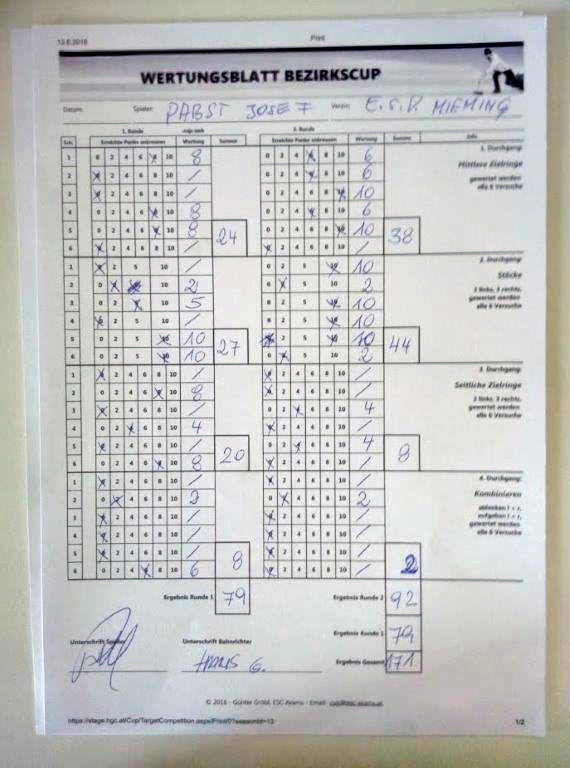 13.6.2018 Print
WERTUNGSBLATT BEZIRKSCUP
Datum: Spieler: PABST JOSEF Verein: E.S.V. MIEMING
1. Runde 2. Runde
Sch. Erreichte Punkte ankreuzen Wertung Summe Erreichte Punkte ankreuzen Wertung Summe Info
1 0 2 4 6 8 10 8 0 2 4 6 8 10 6 1. Durchgang:
2 0 2 4 6 8 10 / 0 2 4 6 8 10 6 Mittlere Zielringe
3 0 2 4 6 8 10 / 0 2 4 6 8 10 10 gewertet werden
4 0 2 4 6 8 10 8 0 2 4 6 8 10 6 alle 6 Versuche
5 0 2 4 6 8 10 8 24 0 2 4 6 8 10 10 38
6 0 2 4 6 8 10 / 0 2 4 6 8 10 /
1 0 2 5 10 / 0 2 5 10 10 2. Durchgang:
2 0 2 5 10 2 0 2 5 10 2 Stöcke
3 0 2 5 10 5 0 2 5 10 10 3 links, 3 rechts,
4 0 2 5 10 / 0 2 5 10 10 gewertet werden
5 0 2 5 10 10 27 0 2 5 10 10 44 alle 6 Versuche
6 0 2 5 10 10 0 2 5 10 2
1 0 2 4 6 8 10 / 0 2 4 6 8 10 / 3. Durchgang:
2 0 2 4 6 8 10 8 0 2 4 6 8 10 / Seitliche Zielringe
3 0 2 4 6 8 10 / 0 2 4 6 8 10 4 3 links, 3 rechts,
4 0 2 4 6 8 10 4 0 2 4 6 8 10 / gewertet werden
5 0 2 4 6 8 10 / 20 0 2 4 6 8 10 4 8 alle 6 Versuche
6 0 2 4 6 8 10 8 0 2 4 6 8 10 /
1 0 2 4 6 8 10 / 0 2 4 6 8 10 / 4. Durchgang:
2 0 2 4 6 8 10 2 0 2 4 6 8 10 2 Kombinieren
3 0 2 4 6 8 10 / 0 2 4 6 8 10 /
4 0 2 4 6 8 10 / 0 2 4 6 8 10 / gewertet werden
5 0 2 4 6 8 10 / 8 0 2 4 6 8 10 / 2 alle 6 Versuche
6 0 2 4 6 8 10 6 0 2 4 6 8 10 /
Ergebnis Runde 1 79 Ergebnis Runde 2 92
Ergebnis Runde 1 79
Unterschrift Spieler Unterschrift Bahnrichter
Ergebnis Gesamt 171
© 2018 - Günter Gröbl, ESC Axams - Email:
https://stage.hgc.at/Cup/TargetCompetition.aspx/Print/0?seasonId=13 1/2